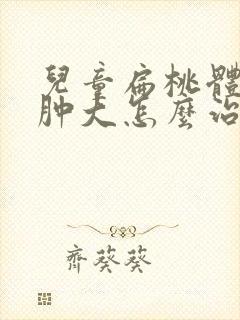 兒童扁桃體
肿大怎麼治
齊葵葵